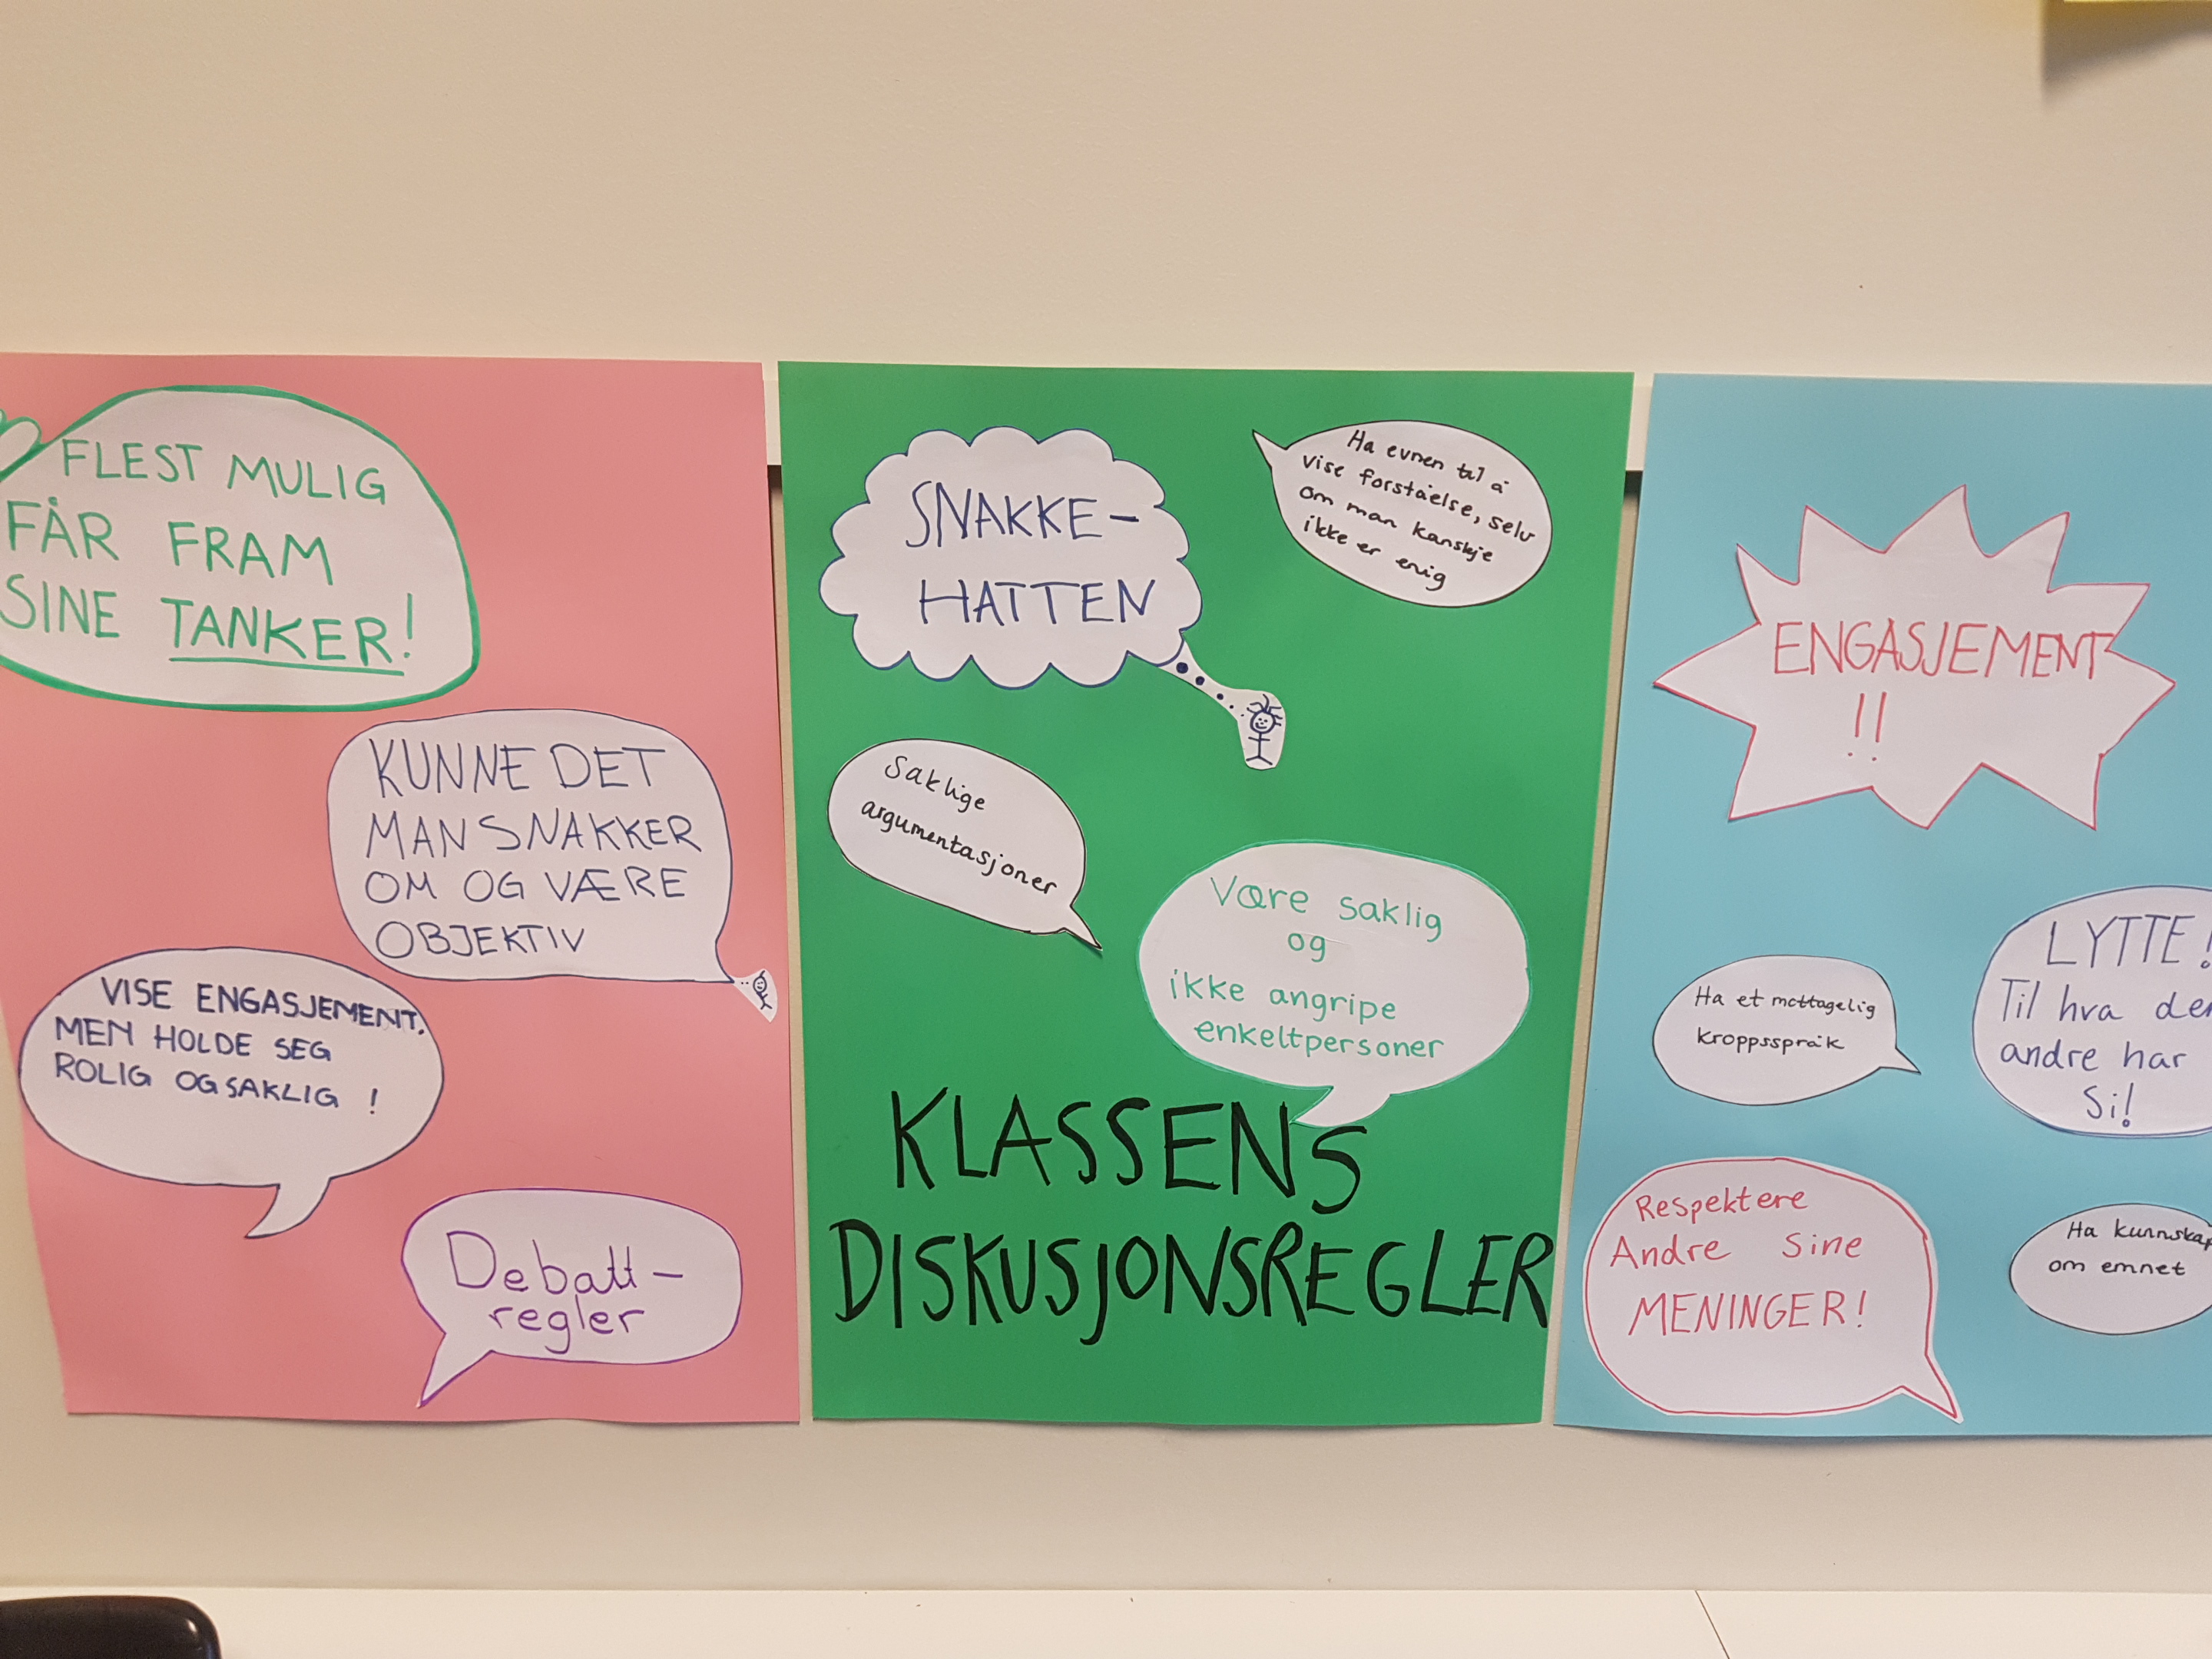 FLEST MULIG
FÅR FRAM
SINE TANKER!
KUNNE DET
MAN SNAKKER
OM OG VÆRE
OBJEKTIV
VISE ENGASJEMENT,
MEN HOLDE SEG
ROLIG OG SAKLIG !
Debatt-
regler
SNAKKE-
HATTEN
Ha evnen til å
vise forståelse, selv
om man kanskje
ikke er enig
Saklige
argumentasjoner
Være saklig
og
ikke angripe
enkeltpersoner
KLASSENS
DISKUSJONSREGLER
ENGASJEMENT
!!
LYTTE!
Til hva
andre har
Si!
Ha et mottagelig
kroppsspråk
Respektere
Andre Sine
MENINGER!
Ha
om emnet